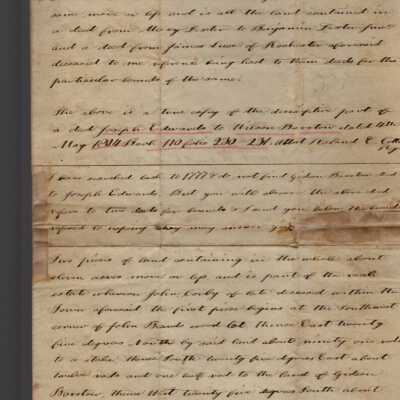 same more or less and is all the land contained in
a deed from Mercy Foster to Benjamin Foster Jun
and a deed from James Luce of Rochester aforesaid
deceased to me reference being had to them deeds for the
particular bounds of the same.
The above is a true copy of the descriptive part of
a deed Joseph Edwards to Wilson Barstow dated 4th
May 1814 Book 110 folio 230 - 231. Attest Roland E. Cotton
Reg
I have searched back to 1777 & do not find Gideon Barstow deed
to Joseph Edwards. But you will observe the above deed
refers to two deeds for bounds & I send you below the bounds
refered to hoping they may answer
Two pieces of land containing in the whole about
eleven acres more or less and is part of the real
estate whereon John Corby of late deceased within the
Town aforesaid the first piece begins at the Southwest
corner of John Beards wood lot thence East twenty
five degrees North by said land about ninety one rods
to a stake thence South twenty five degrees East about
twelve rods and one half rod to the land of Gideon
Barstow, thence West twenty five degrees South about